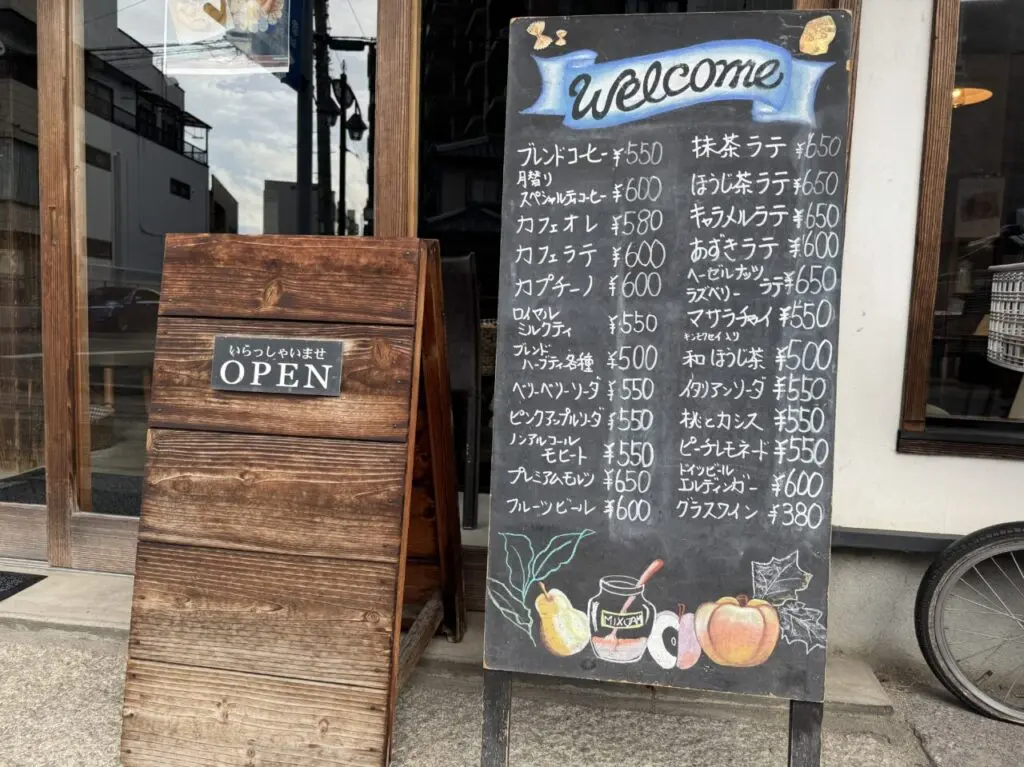 Welcome
ブレンドコーヒー ¥550
月替り
スペシャルティコーヒー ¥600
カフェオレ ¥580
カフェラテ ¥600
カプチーノ ¥600
ロイヤル
ミルクティ ¥550
ブレンド
ハーブティ各種 ¥500
ベリーベリーソーダ ¥550
ピンクアップルソーダ ¥550
ノンアルコール
モヒート ¥550
プレミアムモルツ ¥650
フルーツビール ¥600
抹茶ラテ ¥650
ほうじ茶ラテ ¥650
キャラメルラテ ¥650
あずきラテ ¥600
ヘーゼルナッツ
ラズベリー ラテ ¥650
マサラチャイ ¥550
和ほうじ茶 ¥500
イタリアンソーダ ¥550
桃とカシス ¥550
ピーチレモネード ¥550
ドイツビール
エルディンガー ¥600
グラスワイン ¥380
MIXJAM
いらっしゃいませ
OPEN